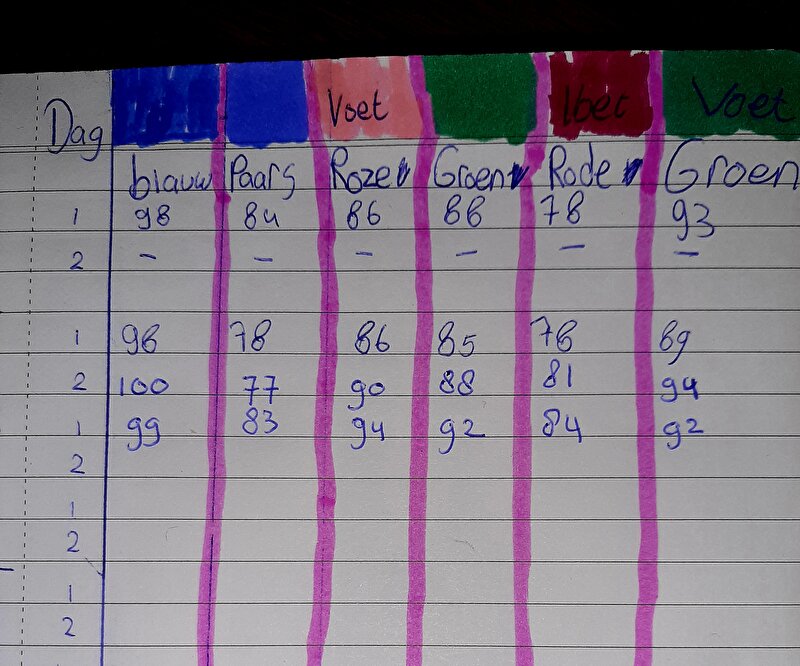 Voet Iber Voet
Dag
blauw Paars Roze Groen Rode Groen
1 98 84 86 88 78 93
2 - - - - - -
1 98 78 86 85 78 89
2 100 77 90 88 81 94
1 99 83 94 92 84 92
2
1
2
1
2